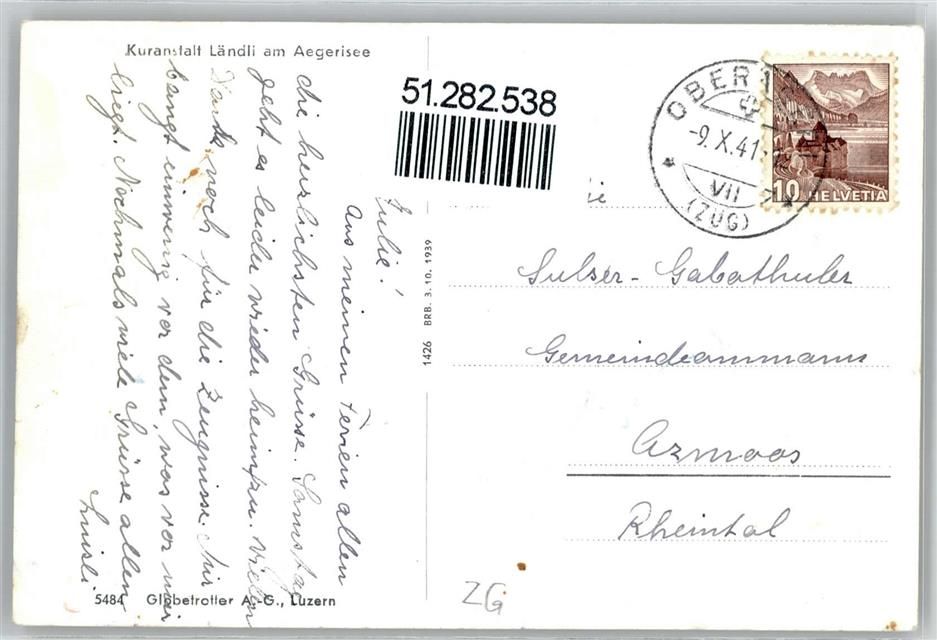 Kuranstalt Ländli am Aegerisee
Julie!
Aus meinen Ferien allen
die herzlichsten Grüsse. Samstag
geht es leider wieder heimzu. Vielen
Dank noch für die Zeugnisse. Mir
bangt inwenig vor dem, was vor mir
liegt. Nochmals viele Grüsse allen
Luisli
5484 Globetrotter A.-G., Luzern
1426 BRB. 3. 10. 1939
51.282.538
OBER
-9.X.41-
VII
(ZUG)
10 HELVETIA
Sulser-Gabathuler
Gemeindeammann
Azmoos
Rheintal
ZG